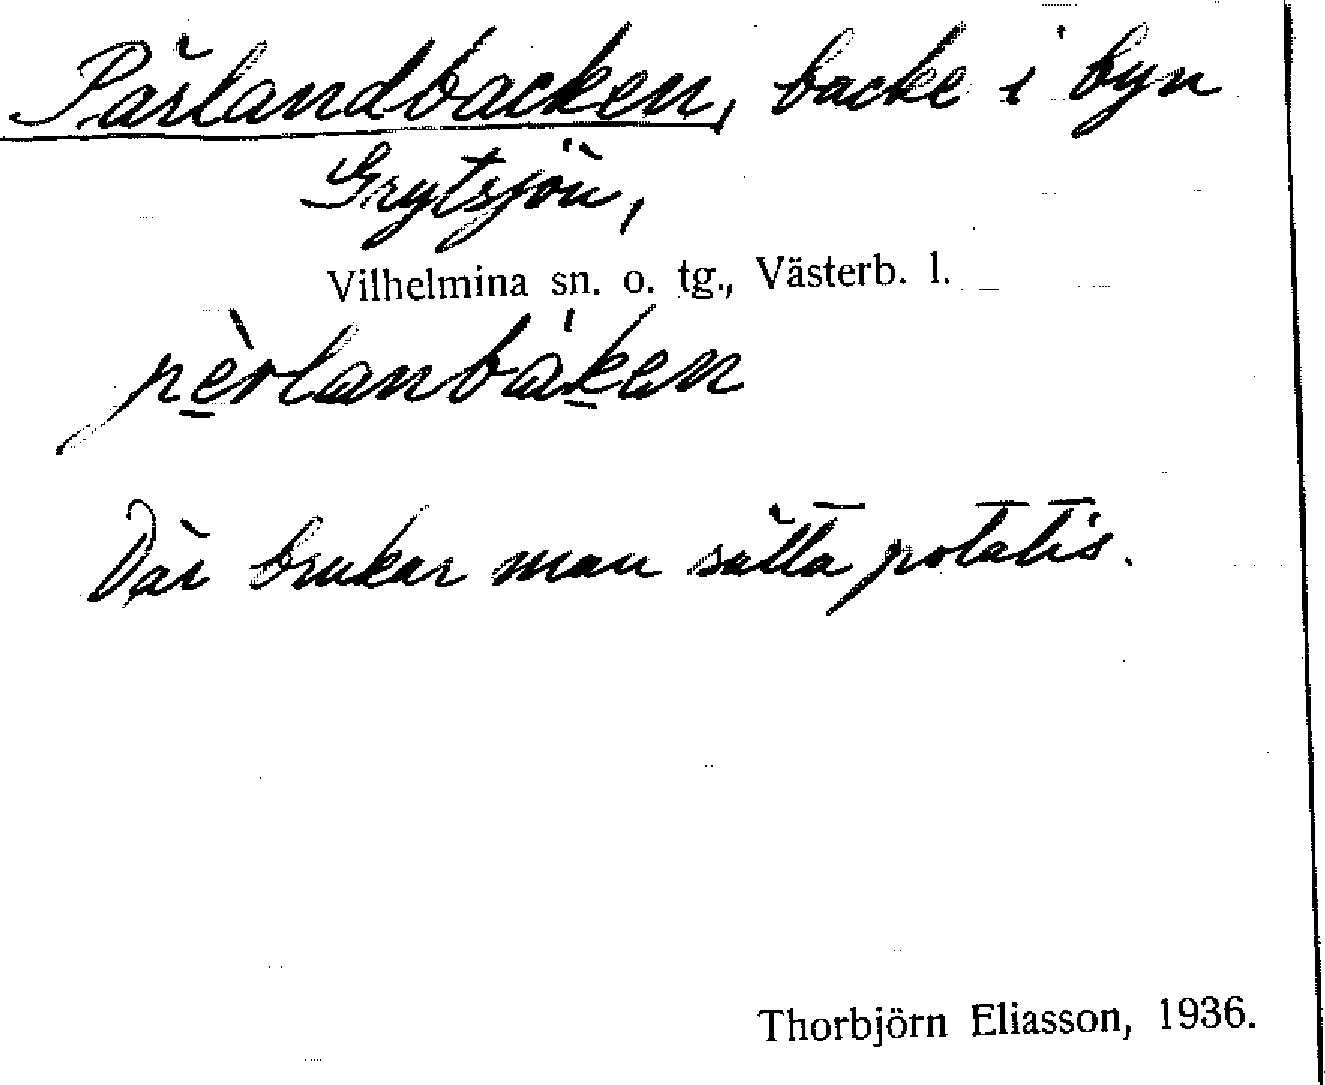 Pärlandbacken, backe i byn
Grytsjön,
Vilhelmina sn. o. tg., Västerb. l.
pèrlanbáken
Där brukar man sätta potatis.
Thorbjörn Eliasson, 1936.